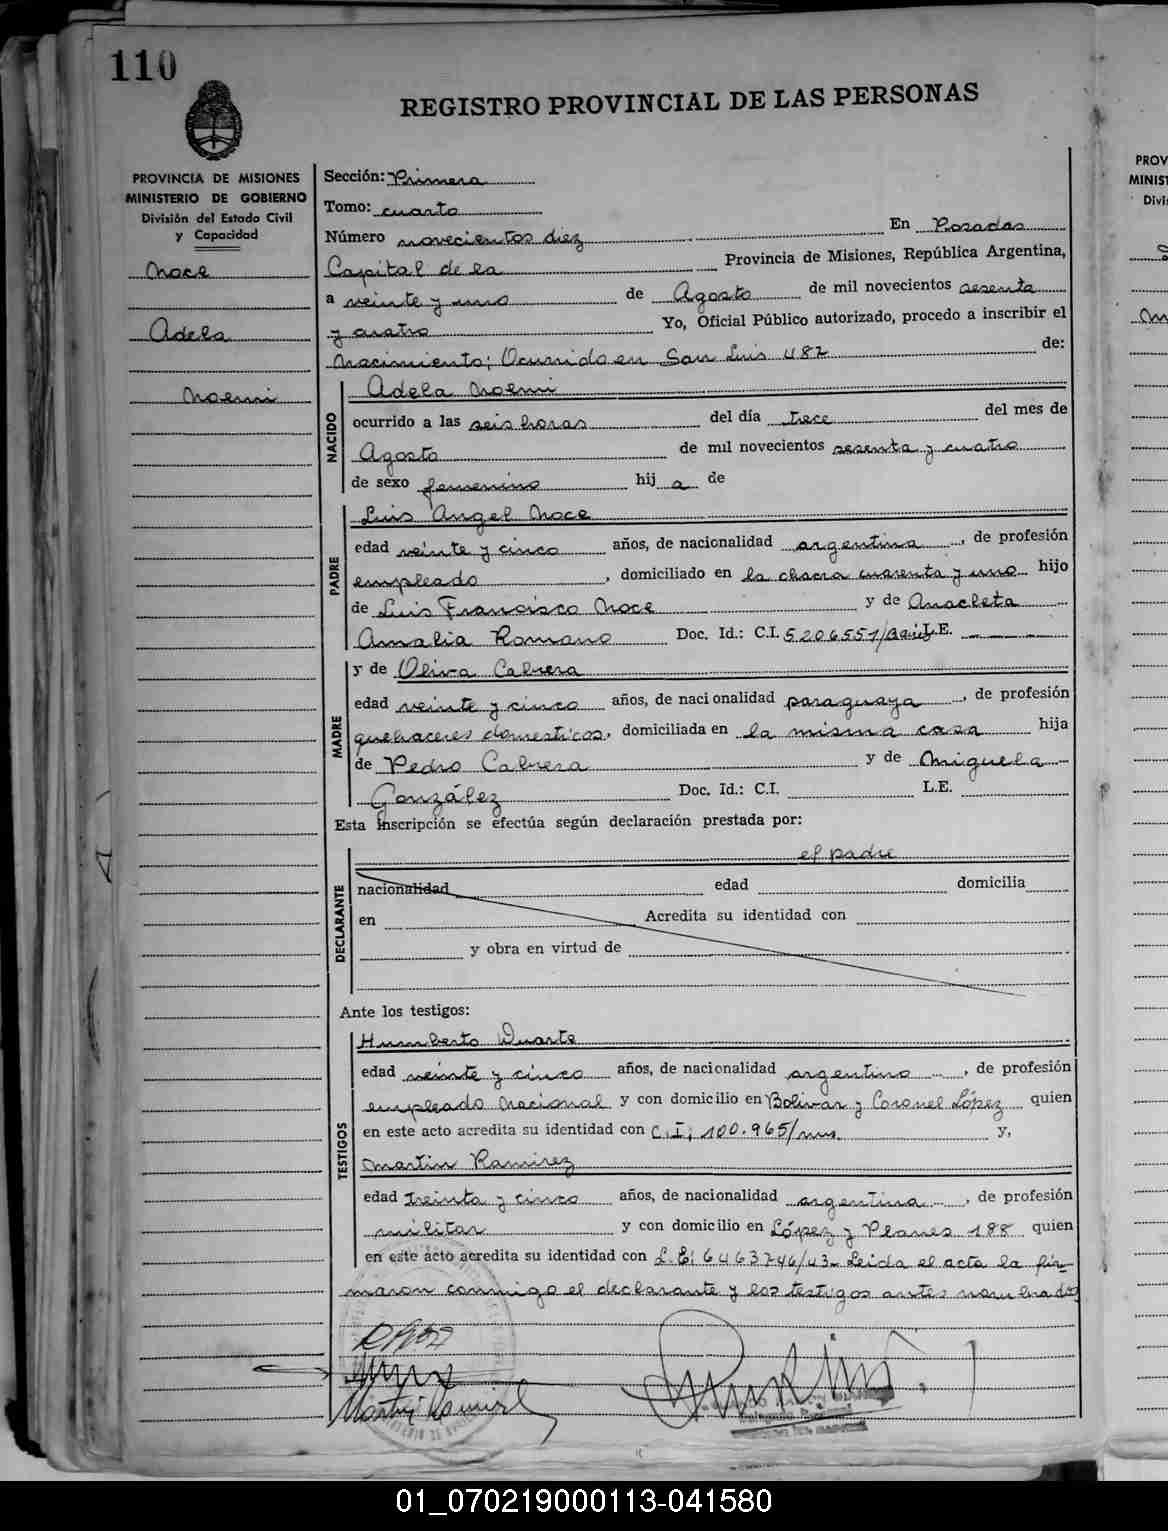 110
REGISTRO PROVINCIAL DE LAS PERSONAS
PROVINCIA DE MISIONES
MINISTERIO DE GOBIERNO
División del Estado Civil
y Capacidad
Noce
Adela
Noemi
Sección: Primera
Tomo: cuarto
Número novecientos diez En Posadas
Capital de la Provincia de Misiones, República Argentina,
a veinte y uno de Agosto de mil novecientos sesenta
y cuatro Yo, Oficial Público autorizado, procedo a inscribir el
Nacimiento; Ocurrido en San Luis 487 de:
NACIDO
Adela Noemi
ocurrido a las seis horas del día trece del mes de
Agosto de mil novecientos sesenta y cuatro
de sexo femenino hij a de
PADRE
Luis Angel Noce
edad veinte y cinco años, de nacionalidad argentina, de profesión
empleado, domiciliado en la chacra cuarenta y uno hijo
de Luis Francisco Noce y de Anacleta
Amalia Romano Doc. Id.: C.I. 5206551/ L.E.
MADRE
y de Oliva Cabrera
edad veinte y cinco años, de nacionalidad paraguaya, de profesión
quehaceres domesticos, domiciliada en la misma casa hija
de Pedro Cabrera y de Miguela
González Doc. Id.: C.I. L.E.
Esta inscripción se efectúa según declaración prestada por:
DECLARANTE
el padre
nacionalidad edad domicilia
en Acredita su identidad con
y obra en virtud de
Ante los testigos:
TESTIGOS
Humberto Duarte
edad veinte y cinco años, de nacionalidad argentino, de profesión
empleado Nacional y con domicilio en Bolivar y Coronel López quien
en este acto acredita su identidad con C.I; 100.965/mns. y,
Martin Ramirez
edad treinta y cinco años, de nacionalidad argentina, de profesión
militar y con domicilio en López y Planes 188 quien
en este acto acredita su identidad con L.E; 6463746/43- Leida el acta la fir-
maron conmigo el declarante y los testigos antes nombrados
Martin Ramirez
01_070219000113-041580